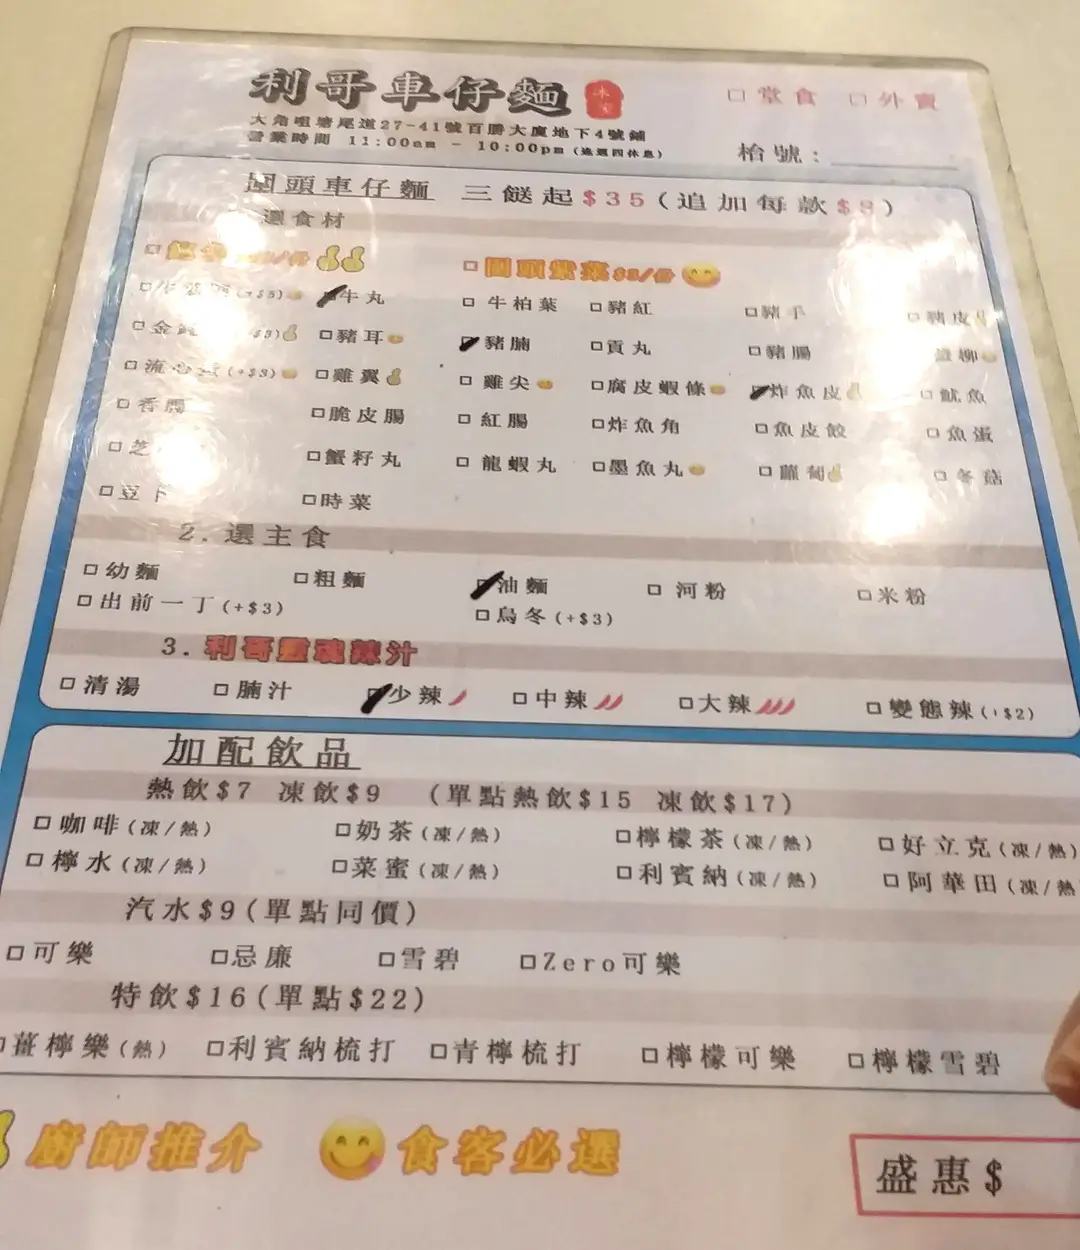 利哥車仔麵
□堂食 □外賣
大角咀塘尾道27-41號百勝大廈地下4號鋪
營業時間 11:00am - 10:00pm (逢週四休息)
枱號:
車仔麵 三餸起$35(追加每款$8)
選食材
(+$5) 牛丸 □牛柏葉 □豬紅 □豬手 □豬皮
□金 $3) □豬耳 豬腩 □貢丸 □豬腸 柳
□流心 (+$3) □雞翼 □雞尖 □腐皮蝦條 炸魚皮 □魷魚
□香腸 □脆皮腸 □紅腸 □炸魚角 □魚皮餃 □魚蛋
□芝 □蟹籽丸 □龍蝦丸 □墨魚丸 □蘿蔔 □冬菇
□豆卜 □時菜
2.選主食
□幼麵 □粗麵 油麵 □河粉 □米粉
□出前一丁(+$3) □烏冬(+$3)
3.利哥靈魂辣汁
□清湯 □腩汁 少辣 □中辣 □大辣 □變態辣(+$2)
加配飲品
熱飲$7 凍飲$9 (單點熱飲$15 凍飲$17)
□咖啡(凍/熱) □奶茶(凍/熱) □檸檬茶(凍/熱) □好立克(凍/熱)
□檸水(凍/熱) □菜蜜(凍/熱) □利賓納(凍/熱) □阿華田(凍/熱
汽水$9(單點同價)
□可樂 □忌廉 □雪碧 □Zero可樂
特飲$16(單點$22)
□薑檸樂(熱) □利賓納梳打 □青檸梳打 □檸檬可樂 □檸檬雪碧
廚師推介 食客必選
盛惠$